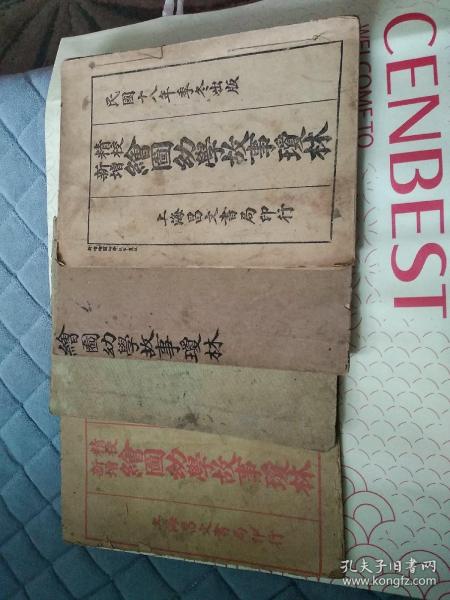 民國十八年季冬出版
精校
新增
繪圖幼學故事瓊林
上海昌文書局印行
繪圖幼學故事瓊林
精校
新增
繪圖幼學故事瓊林
上海昌文書局印行
CENBEST
WELCOME TO
孔夫子旧书网
www.kongfz.com